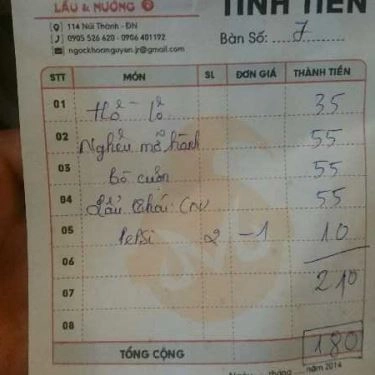 LẨU & NƯỚNG
TÍNH TIỀN
114 Núi Thành - ĐN
0905 526 620 - 0906 401192
ngockhoinguyen.jr@gmail.com
Bàn Số: 7
STT MÓN SL ĐƠN GIÁ THÀNH TIỀN
01 35
02 Nghêu mỡ hành 55
03 Bò cuộn 55
04 Lẩu thái 55
05 Pepsi 2 -1 10
06
07 210
08
TỔNG CỘNG 180
Ngày tháng năm 2014